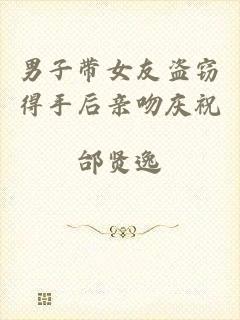 男子带女友盗窃
得手后亲吻庆祝
邰贤逸